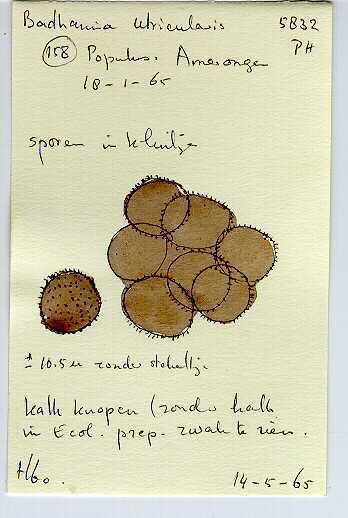 Badhamia utricularis 5832
(158) Populus. Amerongen PH
18-1-65
sporen in kluitje
± 10.5 µ zonder stekeltj.
kalk knopen (zonder kalk
in Ecol. prep. zwak te zien.
14-5-65